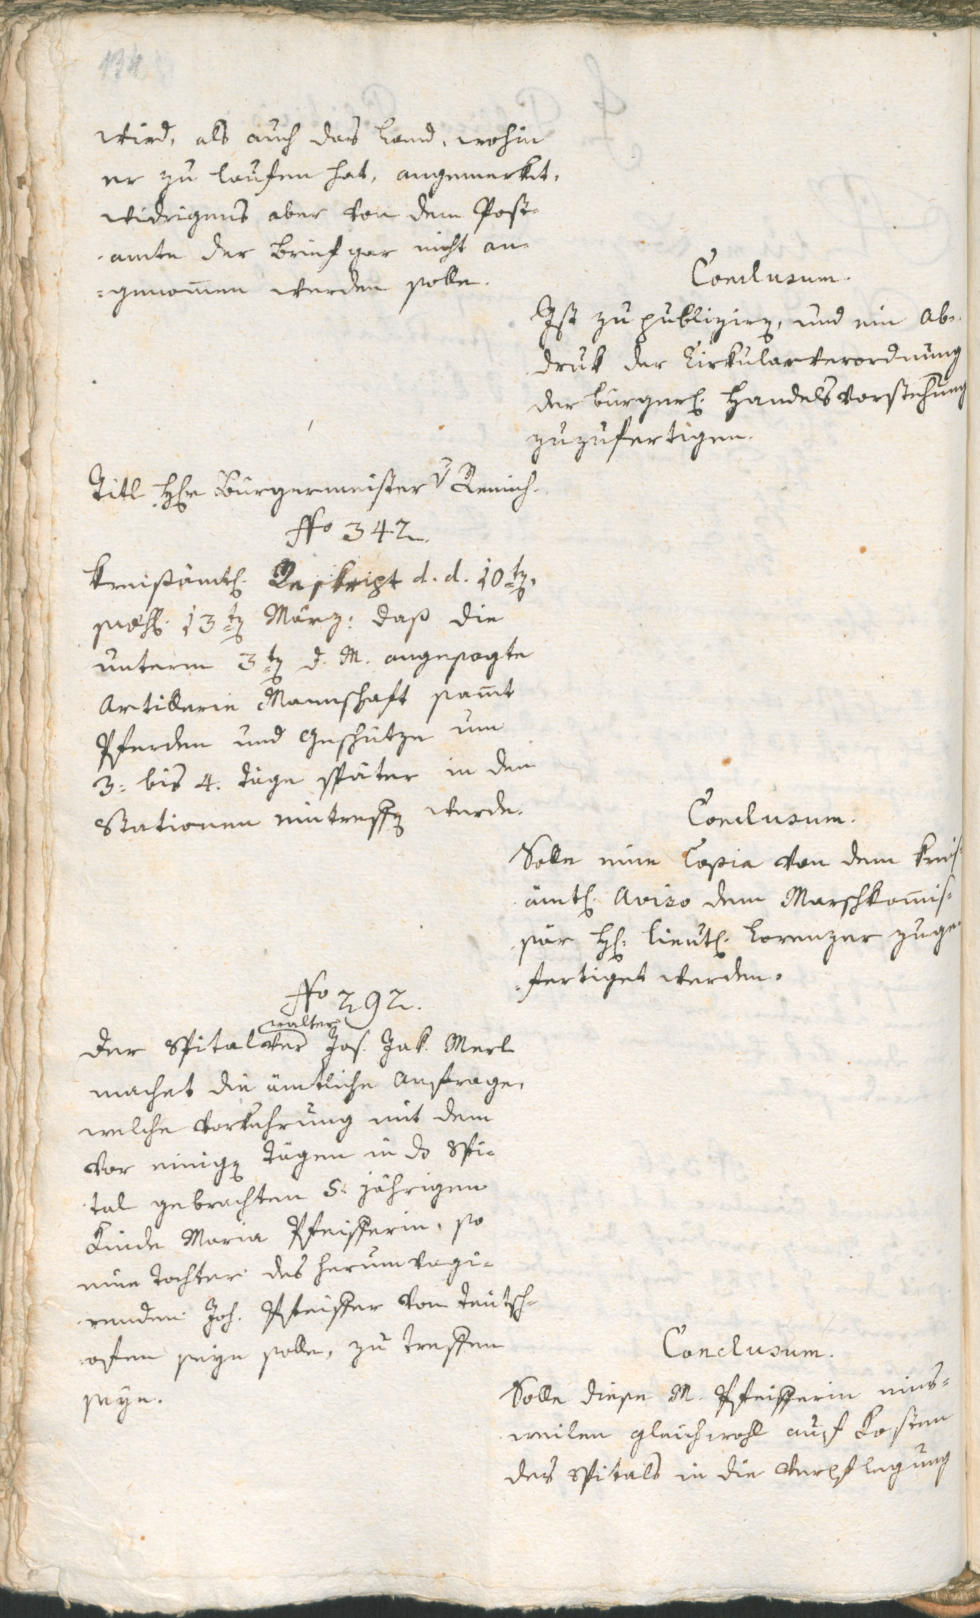 134
wird, als auch das Land, wohin
er zu laufen hat, angemerket,
widrigens aber von dem Post-
amte der Brief gar nicht an-
=genom̄en werden solle.
Conclusum.
Ist zu publiziren, und ein Ab-
druk der Cirkularverordnung
der bürgerl. Handelsvorstehung
zuzufertigen.
Titl Hr Bürgermeister v Remich.
No 342.
Kreisämtl. Reskript d. d. 10ten,
præs. 13ten März: daß die
unterm 3ten d. M. angesagte
Artillerie Mannschaft sam̄t
Pferden und Geschütze um
3. bis 4. Täge später in den
Stationen eintreffen werde.
Conclusum.
Solle eine Copia von dem Kreis-
ämtl. Aviso dem Marschkom̄is-
sär H. Lieut. Lorenzer zuge-
fertiget werden.
No 292.
walter
Der Spitalver Jos. Jak. Merl
machet die ämtliche Anfrage,
welche Vorkehrung mit dem
vor einigen Tägen in das Spi-
tal gebrachten 5. jährigen
Kinde Maria Pfeifferin, so
eine Tochter des herumvagi-
renden Joh. Pfeiffer von Teutsch-
ofen seyn solle, zu treffen
seye.
Conclusum.
Solle diese M. Pfeifferin eins-
weilen gleichwohl auf Kosten
des Spitals in die Verpflegung